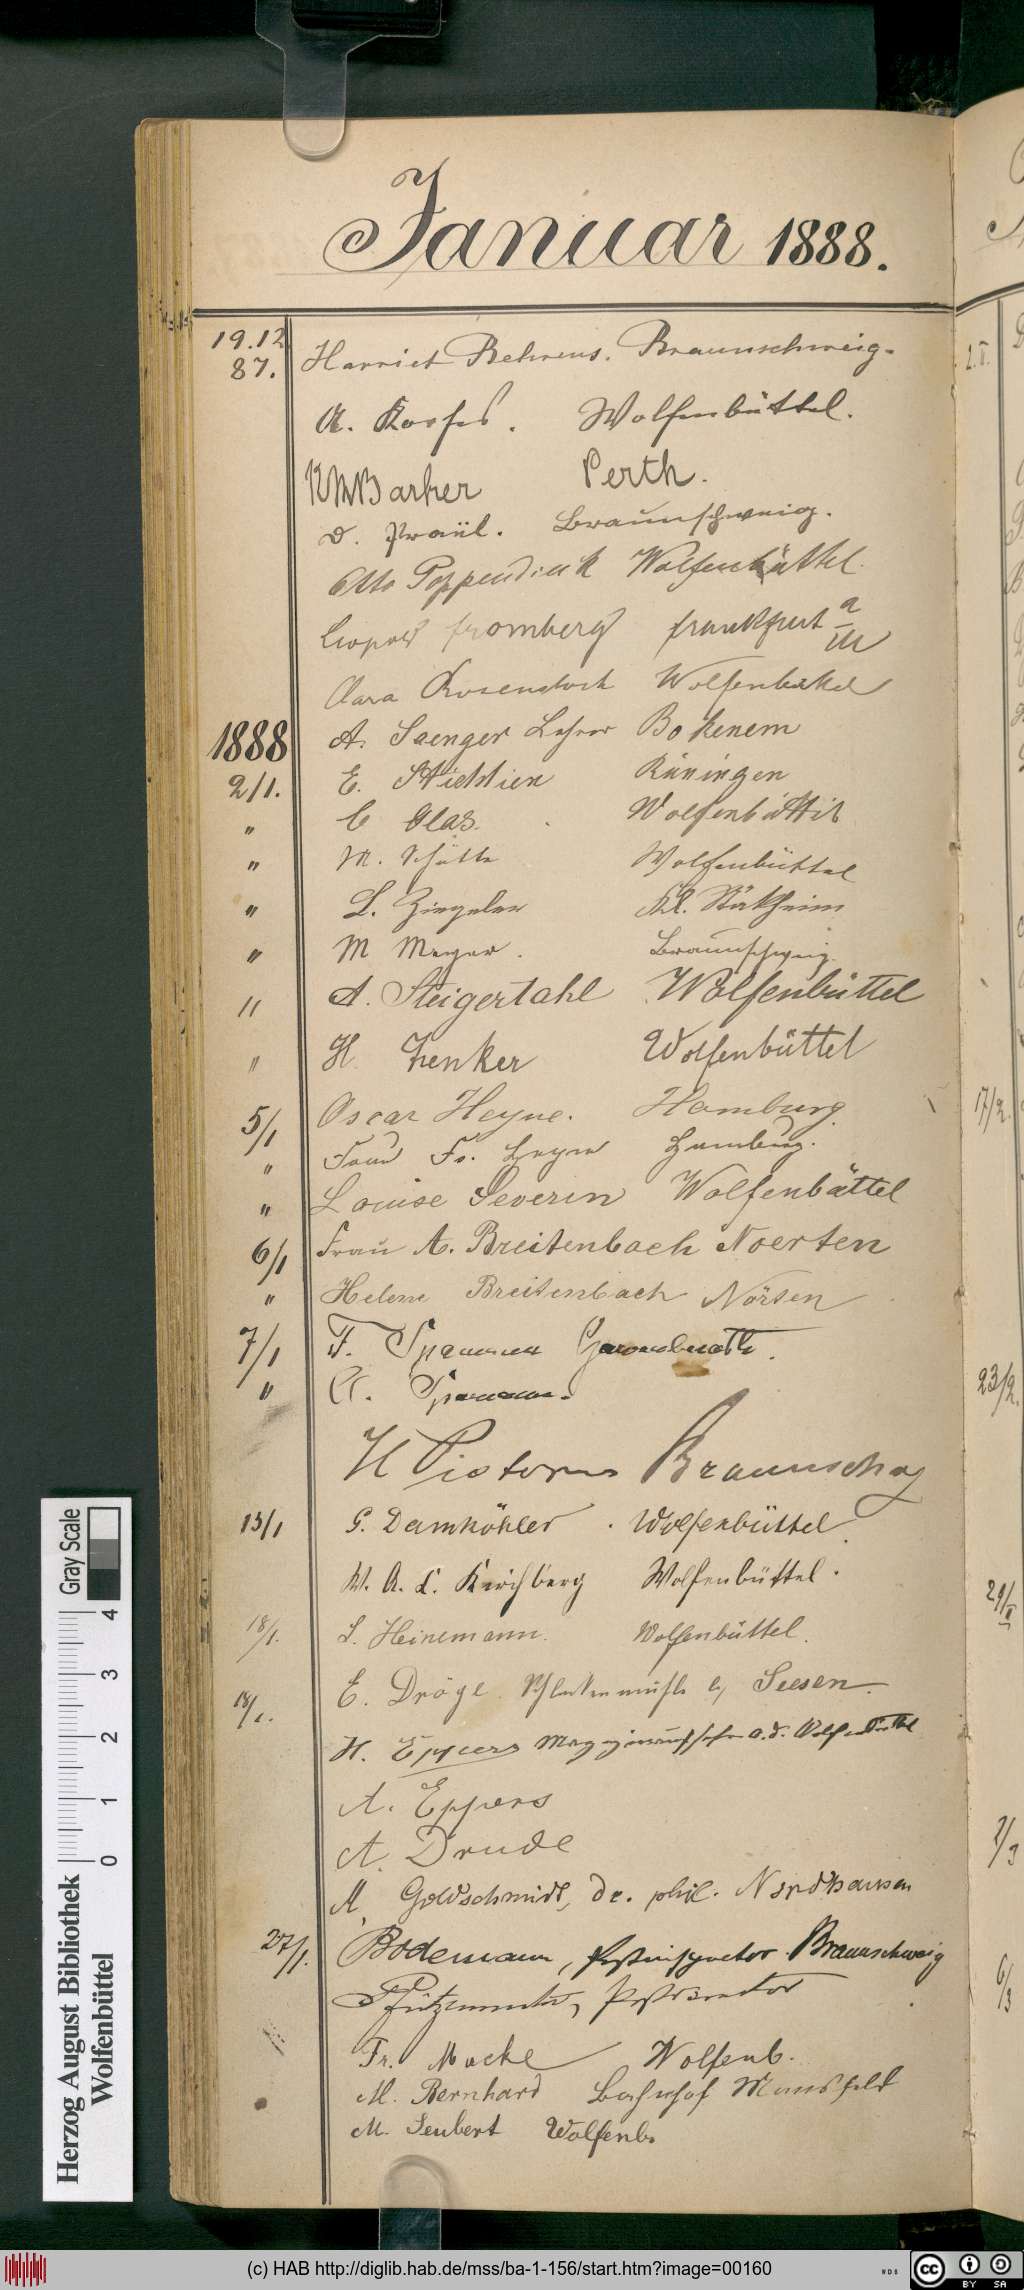 Januar 1888.
19.12 87. Harriet Behrens. Braunschweig.
A. Korfes. Wolfenbüttel.
Barker Perth.
D. Praül. Braunschweig.
Otto Poppendieck Wolfenbüttel.
Leopold Fromberg Frankfurt a/M
Clara Rosenstock Wolfenbüttel
1888 A. Saenger Lehrer Bokenem
2/1. E. Stichtien Rüningen
" C Glas. Wolfenbüttel
" M. Schütte Wolfenbüttel
" L. Ziegeler Kl. Stöckheim
" M Meyer. Braunschweig.
" A. Steigertahl Wolfenbüttel
" H. Zenker Wolfenbüttel
5/1 Oscar Heyne. Hamburg.
" Frau Fr. Heyne Hamburg.
" Louise Severin Wolfenbüttel
6/1 Frau A. Breitenbach Noerten
" Helene Breitenbach Nörten
7/1 F. Spamann
" Spamann.
H Pistorius Braunschwg
13/1 G. Damköhler. Wolfenbüttel.
W. A. L. Kirchberg Wolfenbüttel.
18/1. L. Heinemann. Wolfenbüttel.
18/1. E. Dröge. Seesen.
H. Eppers a.d. Wolfenbüttel
A. Eppers
A. Drude
M. Goldschmidt, Dr. phil. Nordhausen
27/1. Bodemann, Postinspector Braunschweig
Postdirector
Fr. Macke Wolfenb.
M. Bernhard Bahnhof Mansfeld
M. Seubert Wolfenb.
2.II.
17/2.
23/2.
29/II
2/3
6/3
Gray Scale
0 1 2 3 4
Herzog August Bibliothek
Wolfenbüttel
(c) HAB http://diglib.hab.de/mss/ba-1-156/start.htm?image=00160
WDB
cc BY SA